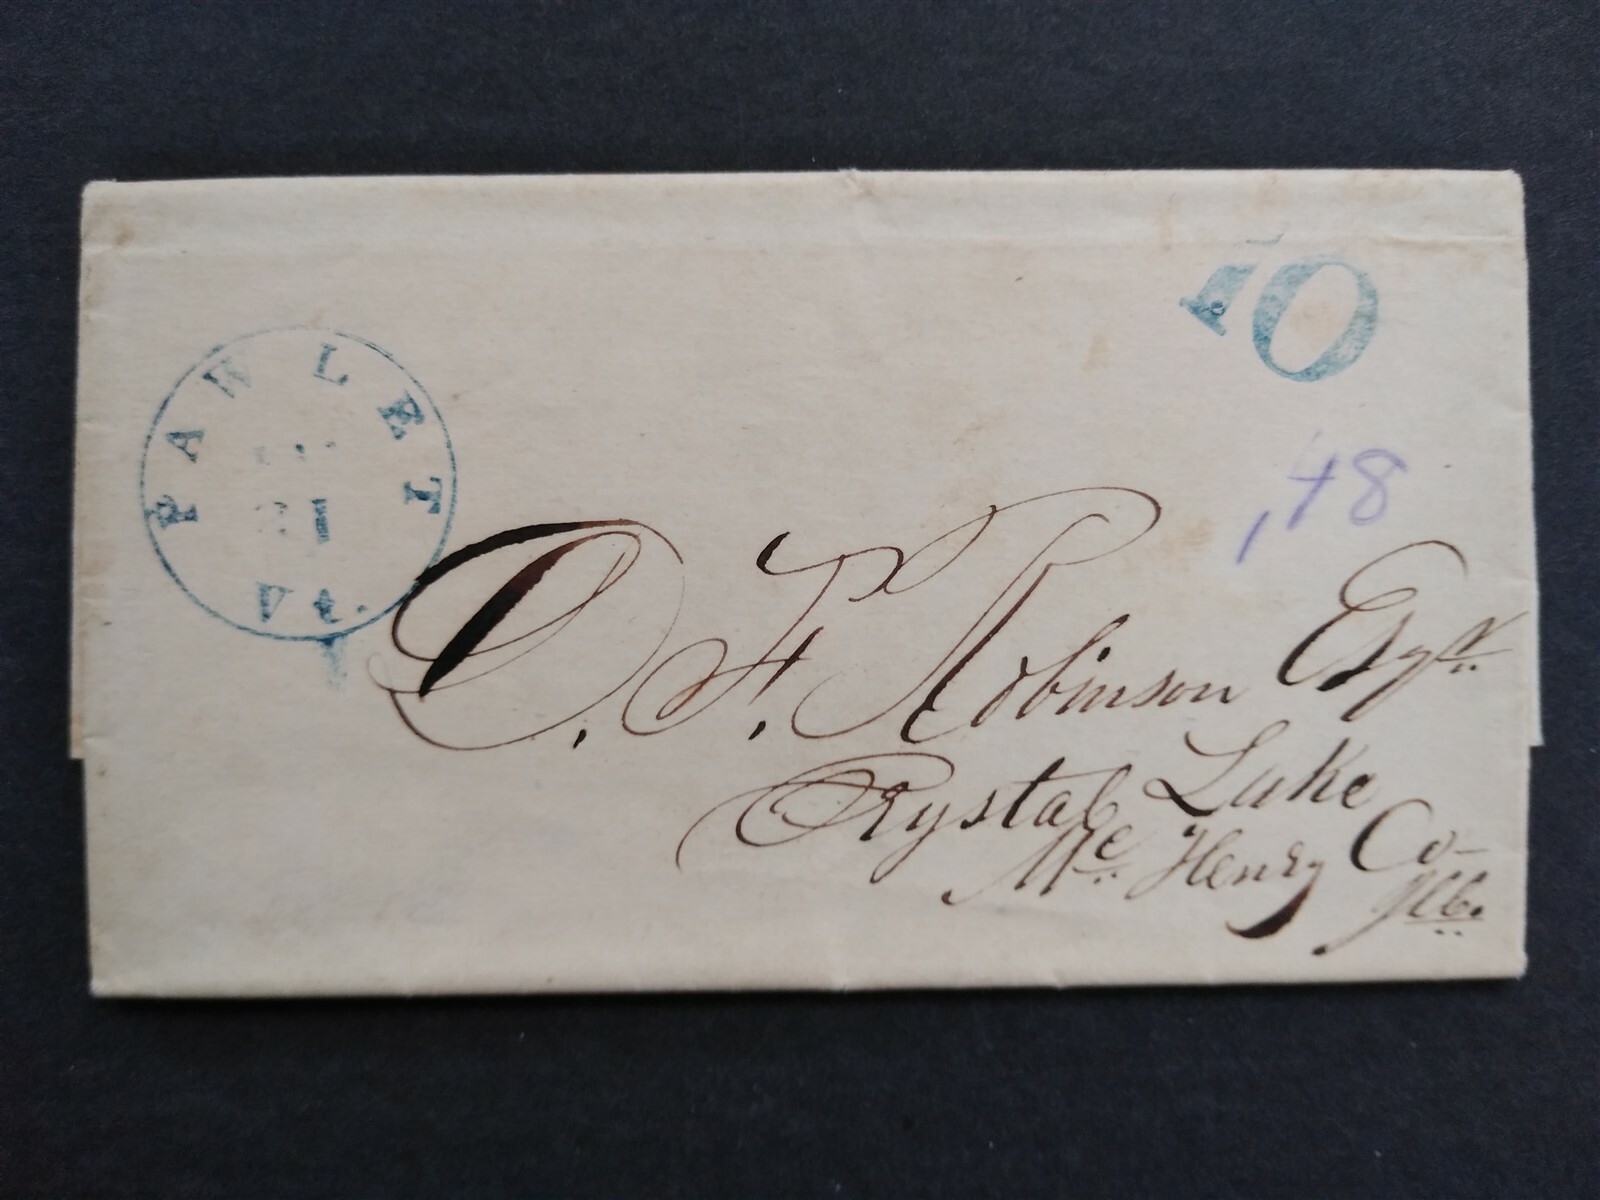 PAWLET
Vt.
10
,48
D. F. Robinson Esqr.
Crystal Lake
Mc. Henry Co-
Ills.